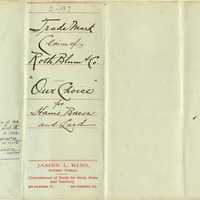 2-197
Trade Mark
Claim of
Roth Blum & Co.
"Our Choice"
for
Hams, Bacon
and Lard
JAMES L. KING,
NOTARY PUBLIC
Commissioner of Deeds for every State
and Territory